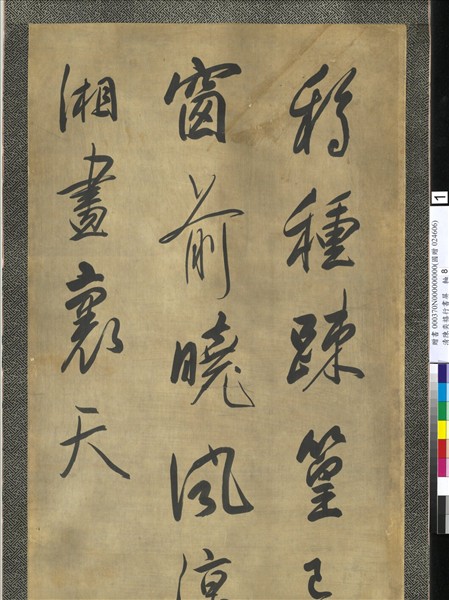 移種踈篁已
窗前曉風凉
湘畫裏天
1
贈書 000370N000000000(國贈 024606)
清陳奕禧行書屏 軸 8